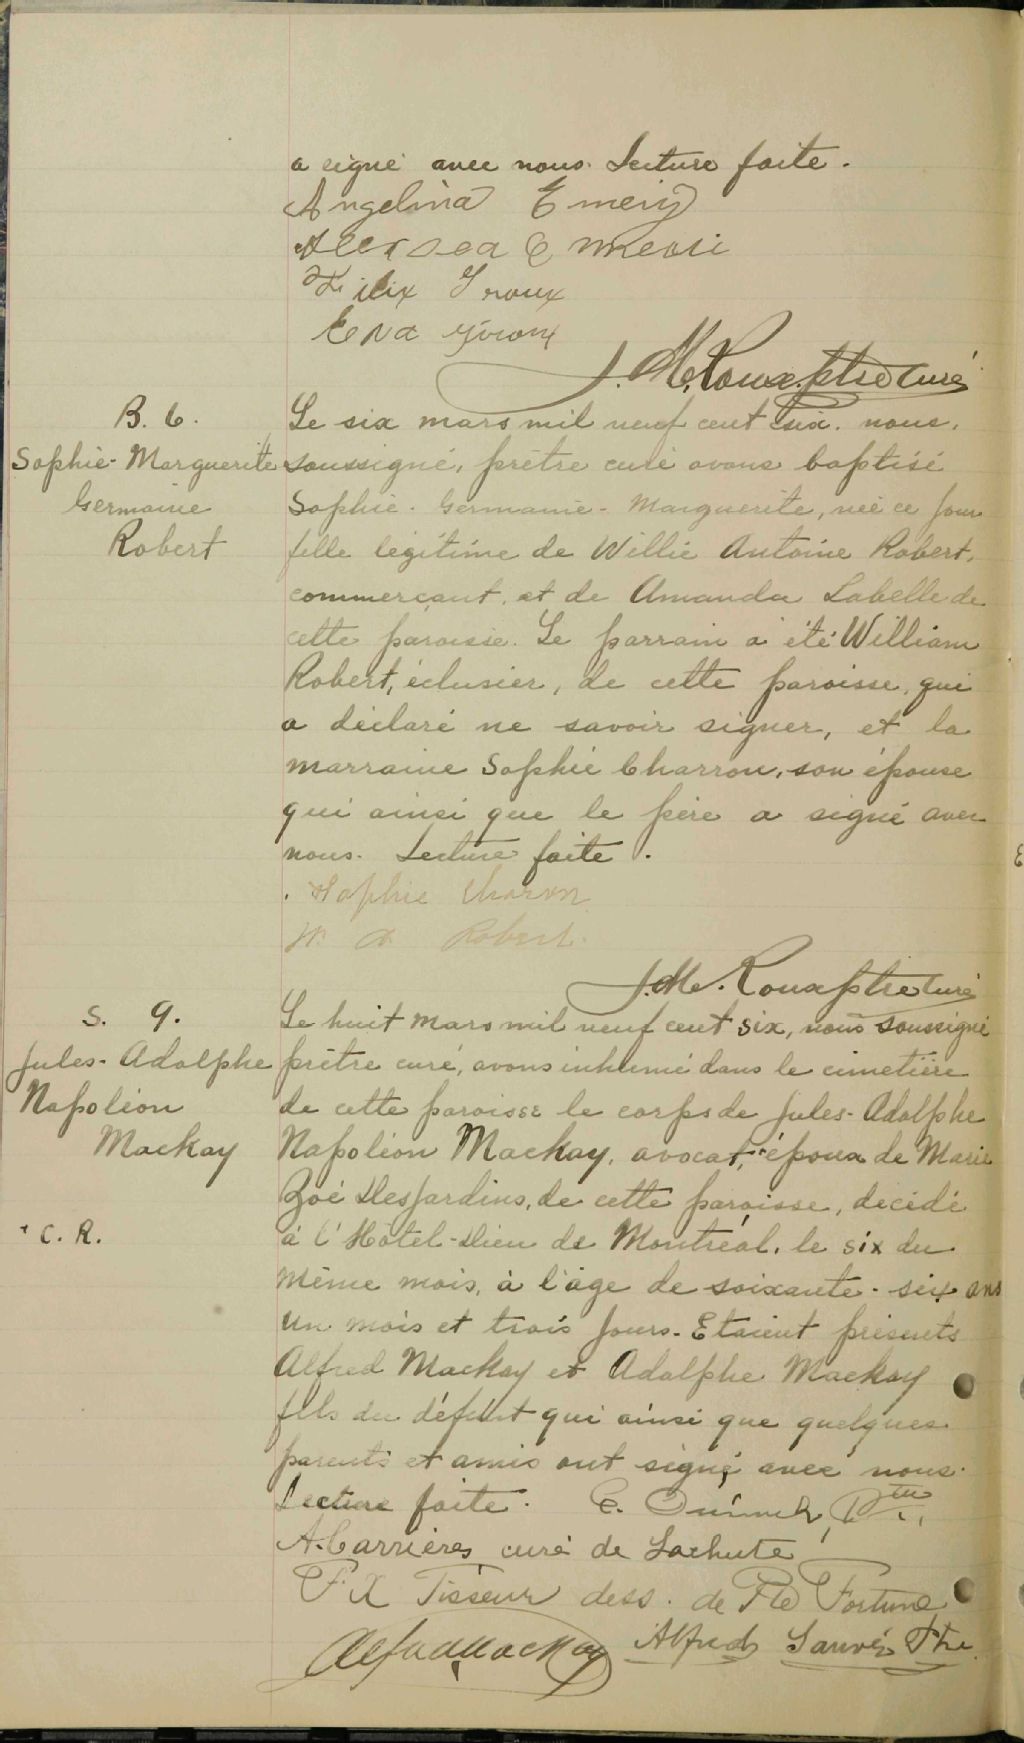 a signé avec nous. Lecture faite.
Angelina Emery
Félix Giroux
Eva Giroux
J. M. Roux ptre curé
B. 6.
Sophie-Marguerite
Germaine
Robert
Le six mars mil neuf cent six, nous,
soussigné, prêtre curé avons baptisé
Sophie-Germaine-Marguerite, née ce jour
fille légitime de Willie Antoine Robert,
commerçant, et de Amanda Labelle de
cette paroisse. Le parrain a été William
Robert, éclusier, de cette paroisse, qui
a déclaré ne savoir signer, et la
marraine Sophie Charron, son épouse
qui ainsi que le père a signé avec
nous. Lecture faite.
Sophie Charon
W. A. Robert.
J. M. Roux ptre curé
S. 9.
Jules-Adolphe
Napoléon
Mackay
+ C. R.
Le huit mars mil neuf cent six, nous soussigné
prêtre curé, avons inhumé dans le cimetière
de cette paroisse le corps de Jules-Adolphe
Napoléon Mackay, avocat,+ époux de Marie
Zoé DesJardins, de cette paroisse, décédé
à l'Hôtel-Dieu de Montréal, le six du
même mois, à l'âge de soixante-six ans
un mois et trois jours. Etaient présents
Alfred Mackay et Adolphe Mackay
fils du défunt qui ainsi que quelques
parents et amis ont signé avec nous.
Lecture faite. C. Ouimet, Ptre,
A. Carrières curé de Lachute
F. X Tisseur dess. de Pte Fortune
Alfred Mackay Alfred Sauvé Ptre